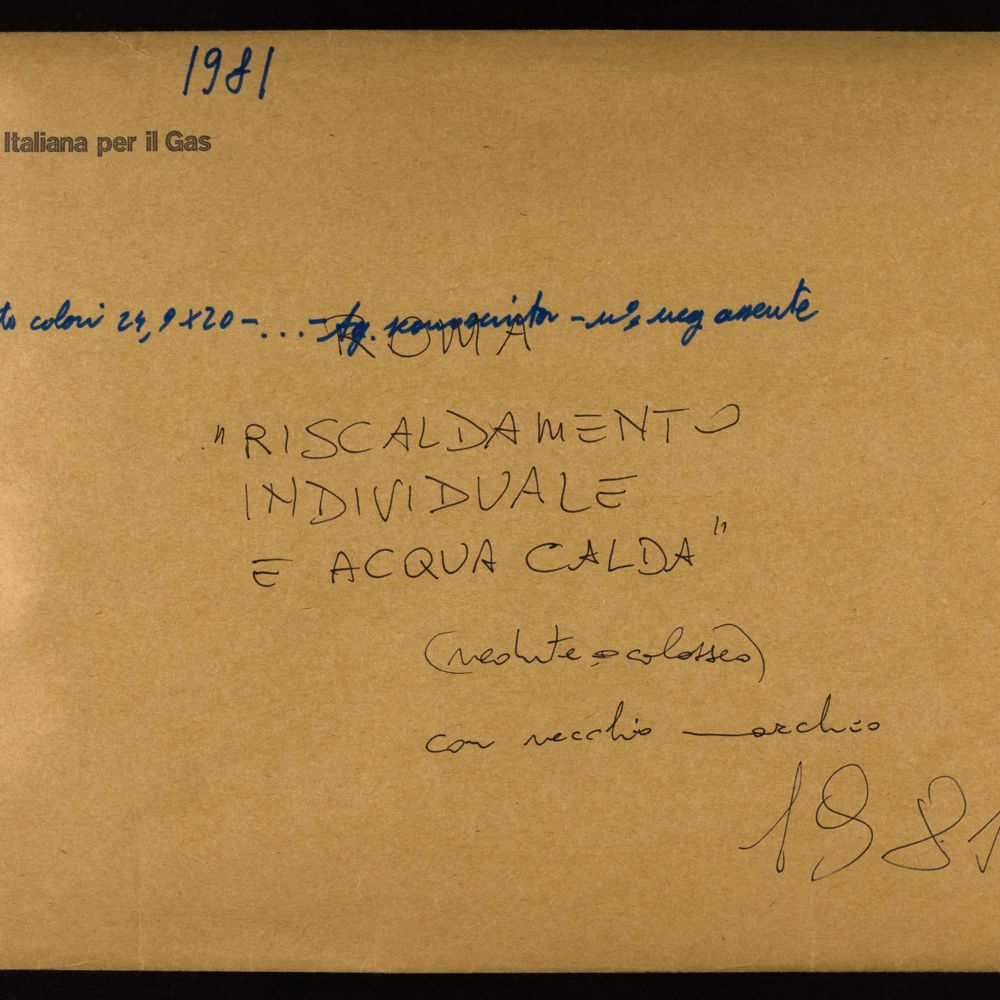 1981
Italiana per il Gas
to colori 24,9x20 - ... - Ag. - n° neg assente
ROMA
"RISCALDAMENTO
INDIVIDUALE
E ACQUA CALDA"
(vedute colosseo)
con vecchio marchio
1981